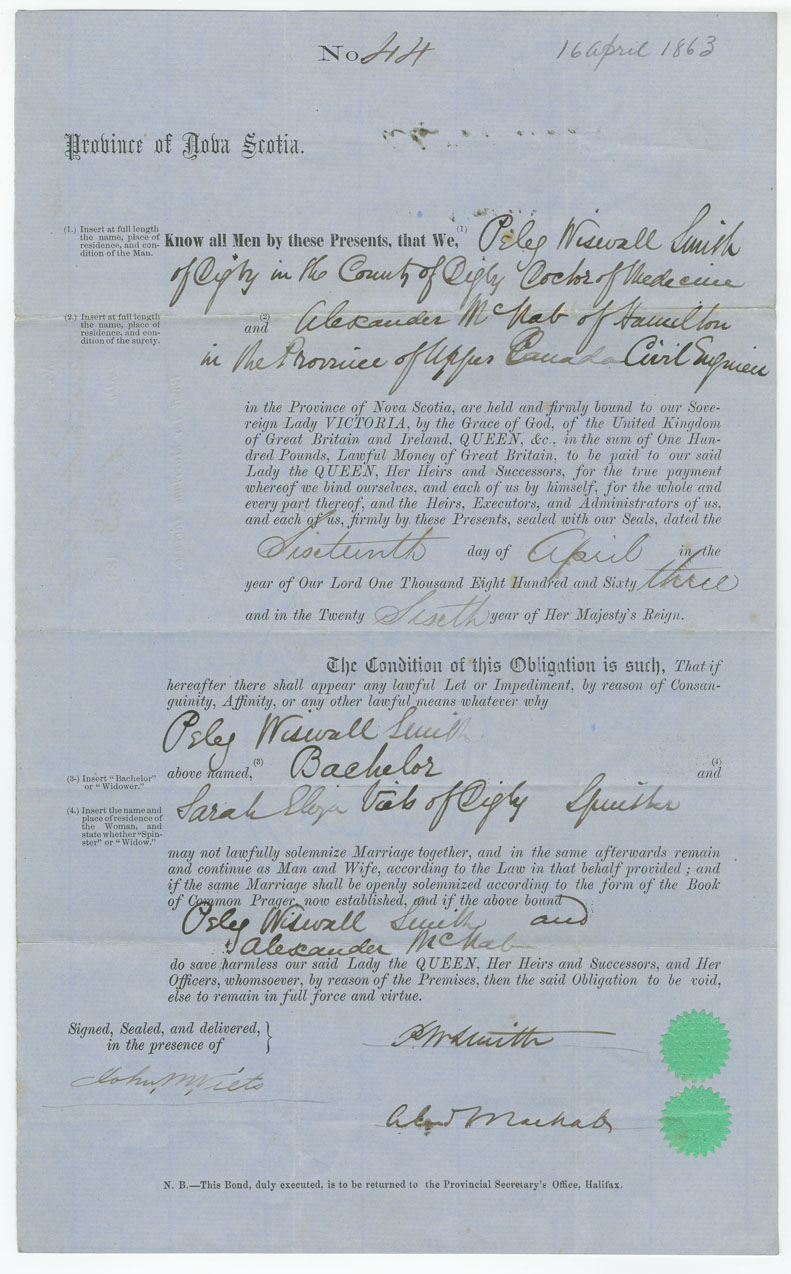 No 44
16 April 1863
Province of Nova Scotia.
(1.) Insert at full length
the name, place of
residence, and con-
dition of the Man.
Know all Men by these Presents, that We, (1) Peleg Wiswall Smith
of Digby in the County of Digby Doctor of Medecine
(2.) Insert at full length
the name, place of
residence, and con-
dition of the surety.
and (2) Alexander McNab of Hamilton
in the Province of Upper Canada Civil Engineer
in the Province of Nova Scotia, are held and firmly bound to our Sove-
reign Lady VICTORIA, by the Grace of God, of the United Kingdom
of Great Britain and Ireland, QUEEN, &c., in the sum of One Hun-
dred Pounds, Lawful Money of Great Britain, to be paid to our said
Lady the QUEEN, Her Heirs and Successors, for the true payment
whereof we bind ourselves, and each of us by himself, for the whole and
every part thereof, and the Heirs, Executors, and Administrators of us,
and each of us, firmly by these Presents, sealed with our Seals, dated the
Sixteenth day of April in the
year of Our Lord One Thousand Eight Hundred and Sixty three
and in the Twenty Sixth year of Her Majesty's Reign.
The Condition of this Obligation is such, That if
hereafter there shall appear any lawful Let or Impediment, by reason of Consan-
guinity, Affinity, or any other lawful means whatever why
Peleg Wiswall Smith
(3.) Insert "Bachelor"
or "Widower."
above named, (3) Bachelor and (4)
(4.) Insert the name and
place of residence of
the Woman, and
state whether "Spin-
ster" or "Widow."
Sarah Eliza Viets of Digby Spinster
may not lawfully solemnize Marriage together, and in the same afterwards remain
and continue as Man and Wife, according to the Law in that behalf provided ; and
if the same Marriage shall be openly solemnized according to the form of the Book
of Common Prager now established, and if the above bound
Peleg Wiswall Smith and
Alexander McNab
do save harmless our said Lady the QUEEN, Her Heirs and Successors, and Her
Officers, whomsoever, by reason of the Premises, then the said Obligation to be void,
else to remain in full force and virtue.
Signed, Sealed, and delivered,
in the presence of
P W Smith
John M Viets
Alexd MacNab
N. B.—This Bond, duly executed, is to be returned to the Provincial Secretary's Office, Halifax.